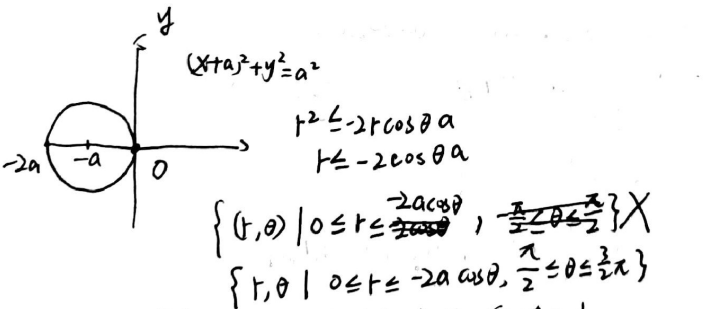 y
(x+a)²+y²=a²
-2a -a 0
r² ≤ -2rcosθ a
r ≤ -2cosθ a
{(r,θ) | 0 ≤ r ≤ -2acosθ, -π/2 ≤ θ ≤ π/2} X
{r,θ | 0 ≤ r ≤ -2a cosθ, π/2 ≤ θ ≤ 3/2 π}